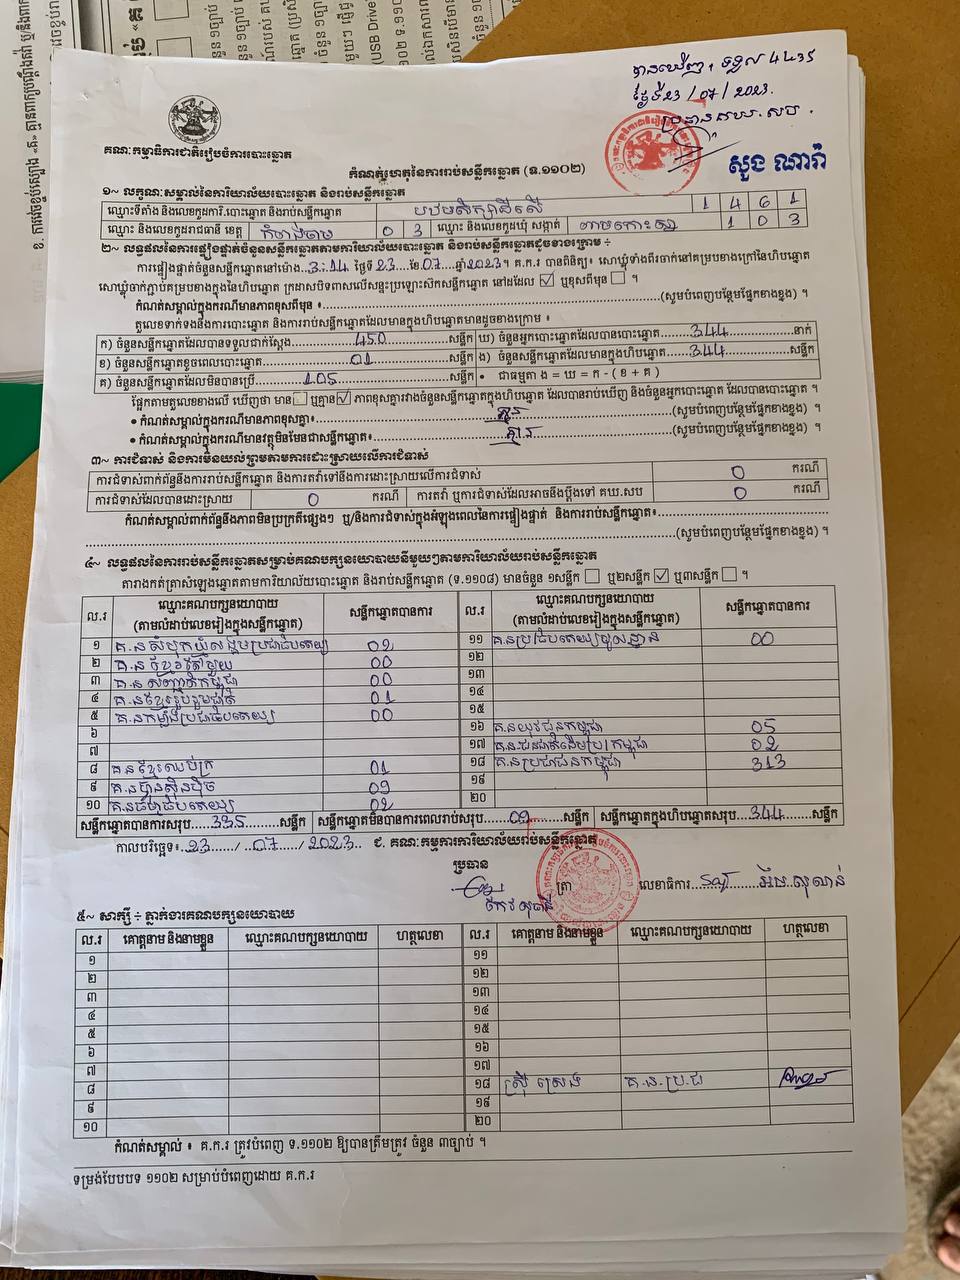 បានឃើញ, ទទួល
ថ្ងៃទី23/07/2023.
ប្រធាន គឃ.សប.
សួង ណារ៉ា
គណៈកម្មាធិការជាតិរៀបចំការបោះឆ្នោត
កំណត់ហេតុនៃការរាប់សន្លឹកឆ្នោត (ទ.១១០២)
១~ លក្ខណៈសម្គាល់នៃការិយាល័យបោះឆ្នោត និងរាប់សន្លឹកឆ្នោត
ឈ្មោះទីតាំង និងលេខកូដការិ.បោះឆ្នោត និងរាប់សន្លឹកឆ្នោត 1 4 6 1
ឈ្មោះ និងលេខកូដរាជធានី ខេត្ត កំពង់ចាម 0 3 ឈ្មោះ និងលេខកូដឃុំ សង្កាត់ 1 0 3
២~ លទ្ធផលនៃការផ្ទៀងផ្ទាត់ចំនួនសន្លឹកឆ្នោតតាមការិយាល័យបោះឆ្នោត និងរាប់សន្លឹកឆ្នោតដូចខាងក្រោម ÷
ការផ្ទៀងផ្ទាត់ចំនួនសន្លឹកឆ្នោតនៅម៉ោង 3:14 ថ្ងៃទី 23 ខែ 07 ឆ្នាំ 2023 ។ គ.ក.រ បានពិនិត្យ៖ សោឃ្មុំទាំងពីរចាក់នៅគម្របខាងក្រៅនៃហិបឆ្នោត
សោឃ្មុំចាក់ភ្ជាប់គម្របខាងក្នុងនៃហិបឆ្នោត ក្រដាសបិទពាសលើសន្ទះប្រឡោះស៊កសន្លឹកឆ្នោត នៅដដែល ☑ ឬខុសពីមុន ☐ ។
កំណត់សម្គាល់ក្នុងករណីមានភាពខុសពីមុន ៖ (សូមបំពេញបន្ថែមផ្នែកខាងខ្នង) ។
តួលេខទាក់ទងនឹងការបោះឆ្នោត និងការរាប់សន្លឹកឆ្នោតដែលមានក្នុងហិបឆ្នោតមានដូចខាងក្រោម ៖
ក) ចំនួនសន្លឹកឆ្នោតដែលបានទទួលជាក់ស្តែង 450 សន្លឹក ឃ) ចំនួនអ្នកបោះឆ្នោតដែលបានបោះឆ្នោត 344 នាក់
ខ) ចំនួនសន្លឹកឆ្នោតខូចពេលបោះឆ្នោត 01 សន្លឹក ង) ចំនួនសន្លឹកឆ្នោតដែលមានក្នុងហិបឆ្នោត 344 សន្លឹក
គ) ចំនួនសន្លឹកឆ្នោតដែលមិនបានប្រើ 105 សន្លឹក • ជាធម្មតា ង = ឃ = ក - ( ខ + គ )
ផ្អែកតាមតួលេខខាងលើ ឃើញថា មាន ☐ ឬគ្មាន ☑ ភាពខុសគ្នារវាងចំនួនសន្លឹកឆ្នោតក្នុងហិបឆ្នោត ដែលបានរាប់ឃើញ និងចំនួនអ្នកបោះឆ្នោត ដែលបានបោះឆ្នោត ។
• កំណត់សម្គាល់ក្នុងករណីមានភាពខុសគ្នា៖ គ្មាន (សូមបំពេញបន្ថែមផ្នែកខាងខ្នង) ។
• កំណត់សម្គាល់ក្នុងករណីមានវត្ថុមិនមែនជាសន្លឹកឆ្នោត៖ គ្មាន (សូមបំពេញបន្ថែមផ្នែកខាងខ្នង) ។
៣~ ការជំទាស់ និងការមិនយល់ព្រមតាមការដោះស្រាយលើការជំទាស់
ការជំទាស់ពាក់ព័ន្ធនឹងការរាប់សន្លឹកឆ្នោត និងការតវ៉ាទៅនឹងការដោះស្រាយលើការជំទាស់ 0 ករណី
ការជំទាស់ដែលបានដោះស្រាយ 0 ករណី ការតវ៉ា ឬការជំទាស់ដែលអាចនឹងប្តឹងទៅ គឃ.សប 0 ករណី
កំណត់សម្គាល់ពាក់ព័ន្ធនឹងភាពមិនប្រក្រតីផ្សេងៗ ឬ/និងការជំទាស់ក្នុងអំឡុងពេលនៃការផ្ទៀងផ្ទាត់ និងការរាប់សន្លឹកឆ្នោត៖
(សូមបំពេញបន្ថែមផ្នែកខាងខ្នង) ។
៤~ លទ្ធផលនៃការរាប់សន្លឹកឆ្នោតសម្រាប់គណបក្សនយោបាយនីមួយៗតាមការិយាល័យរាប់សន្លឹកឆ្នោត
តារាងកត់ត្រាសំឡេងឆ្នោតតាមការិយាល័យបោះឆ្នោត និងរាប់សន្លឹកឆ្នោត (ទ.១១០៨) មានចំនួន ១សន្លឹក ☐ ឬ២សន្លឹក ☑ ឬ៣សន្លឹក ☐ ។
ល.រ ឈ្មោះគណបក្សនយោបាយ (តាមលំដាប់លេខរៀងក្នុងសន្លឹកឆ្នោត) សន្លឹកឆ្នោតបានការ ល.រ ឈ្មោះគណបក្សនយោបាយ (តាមលំដាប់លេខរៀងក្នុងសន្លឹកឆ្នោត) សន្លឹកឆ្នោតបានការ
១ គ.ន សំបុកឃ្មុំសង្គមប្រជាធិបតេយ្យ 02 ១១ 00
២ គ.ន ខ្មែរតែមួយ 00 ១២
៣ 00 ១៣
៤ គ.នខ្មែររួបរួមជាតិ 01 ១៤
៥ គ.នកម្លាំងប្រជាធិបតេយ្យ 00 ១៥
៦ ១៦ គ.នយុវជនកម្ពុជា 05
៧ ១៧ 02
៨ គ.នខ្មែរឈប់ក្រ 01 ១៨ គ.នប្រជាជនកម្ពុជា 313
៩ គ.នហ្វ៊ុនស៊ិនប៉ិច 09 ១៩
១០ គ.នធម្មាធិបតេយ្យ 02 ២០
សន្លឹកឆ្នោតបានការសរុប 335 សន្លឹក សន្លឹកឆ្នោតមិនបានការពេលរាប់សរុប 09 សន្លឹក សន្លឹកឆ្នោតក្នុងហិបឆ្នោតសរុប 344 សន្លឹក
កាលបរិច្ឆេទ៖ 23 / 07 / 2023 ជ. គណៈកម្មការការិយាល័យរាប់សន្លឹកឆ្នោត
ប្រធាន
ត្រា លេខាធិការ
៥~ សាក្សី ÷ ភ្នាក់ងារគណបក្សនយោបាយ
ល.រ គោត្តនាម និងនាមខ្លួន ឈ្មោះគណបក្សនយោបាយ ហត្ថលេខា ល.រ គោត្តនាម និងនាមខ្លួន ឈ្មោះគណបក្សនយោបាយ ហត្ថលេខា
១ ១១
២ ១២
៣ ១៣
៤ ១៤
៥ ១៥
៦ ១៦
៧ ១៧
៨ ១៨ ស្រ៊ី ស្រេង គ.ន.ប្រ.ជ
៩ ១៩
១០ ២០
កំណត់សម្គាល់ ៖ គ.ក.រ ត្រូវបំពេញ ទ.១១០២ ឱ្យបានត្រឹមត្រូវ ចំនួន ៣ច្បាប់ ។
ទម្រង់បែបបទ ១១០២ សម្រាប់បំពេញដោយ គ.ក.រ